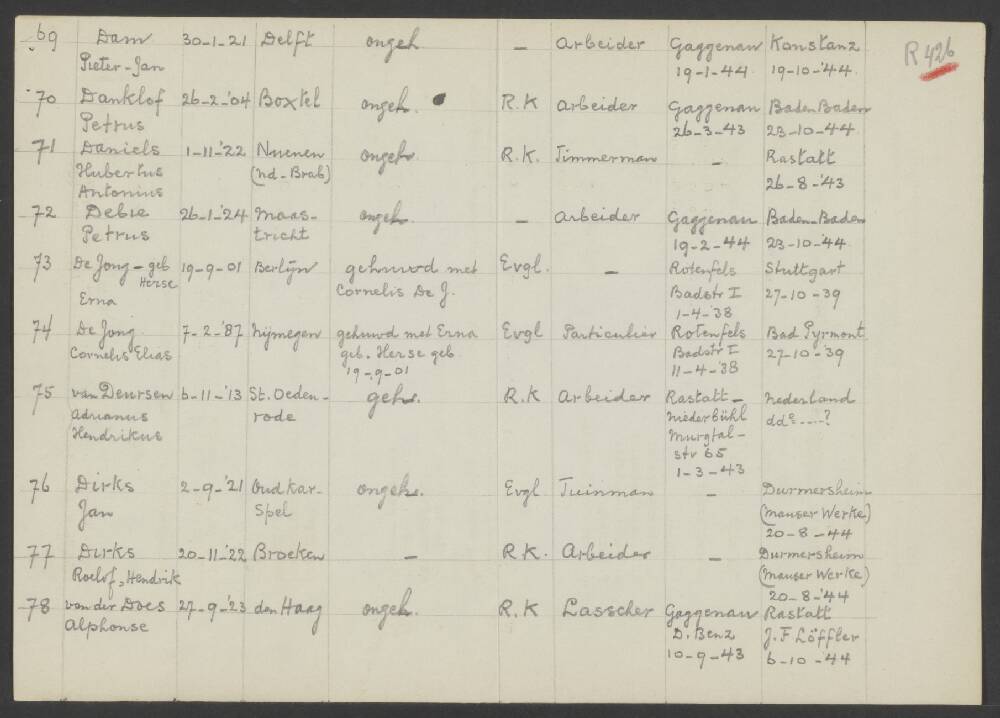 69 Dam 30-1-21 Delft ongeh - Arbeider Gaggenau Konstanz R 426
Pieter-Jan 19-1-44 19-10-'44
70 Danklof 26-2-'04 Boxtel ongeh. R.K Arbeider Gaggenau Baden Baden
Petrus 26-3-43 23-10-44
71 Daniels 1-11-'22 Nuenen ongeh R.K. Timmerman - Rastatt
Hubertus (nd-Brab) 26-8-'43
Antonius
72 Debie 26-1-'24 Maas- ongeh - Arbeider Gaggenau Baden-Baden
Petrus tricht 19-2-44 23-10-'44
73 De Jong-geb 19-9-01 Berlijn gehuwd met Evgl. - Rotenfels Stuttgart
Herse Cornelis De J. Badstr I 27-10-39
Erna 1-4-'38
74 De Jong 7-2-'87 Nijmegen gehuwd met Erna Evgl Particulier Rotenfels Bad Pyrmont
Cornelis Elias geb. Herse geb. Badstr I 27-10-39
19-9-01 11-4-'38
75 van Deursen 6-11-'13 St. Oeden- geh. R.K Arbeider Rastatt- Nederland
Adrianus rode Niederbühl dd°.....?
Hendrikus Murgtal-
str 65
1-3-43
76 Dirks 2-9-'21 Oudkar- ongeh. Evgl Tuinman - Durmersheim
Jan spel (Mauser Werke)
20-8-44
77 Dirks 20-11-'22 Broeken - R.K. Arbeider - Durmersheim
Roelof, Hendrik (Mauser Werke)
20-8-'44
78 van der Does 27-9-'23 den Haag ongeh. R.K Lasscher Gaggenau Rastatt
Alphonse D. Benz J.F Löffler
10-9-43 6-10-44